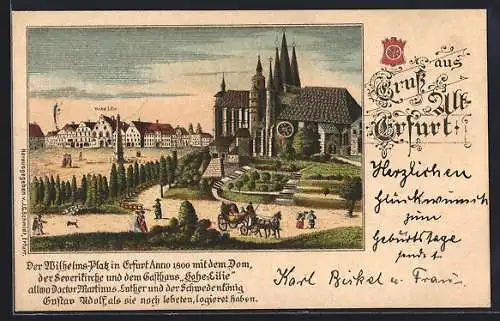 Gruß aus
Alt-
Erfurt.
Hohe Lilie
Herausgegeben v. J.G. Schmidt, Erfurt.
Herzlichen
Glückwunsch
zum
Geburtstage
sendet
Karl Birkel u. Frau.
Der Wilhelms-Platz in Erfurt Anno 1800 mit dem Dom,
der Severikirche und dem Gasthaus „Hohe Lilie"
allwo Doctor Martinus Luther und der Schwedenkönig
Gustav Adolf, als sie noch lebeten, logieret haben.